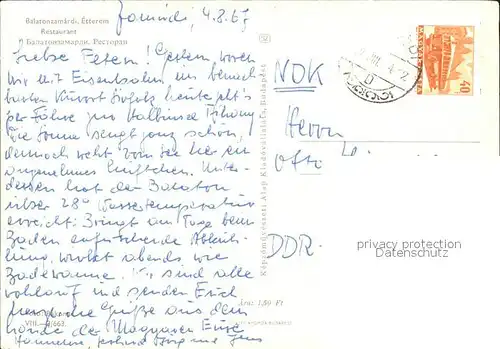 Balatonszamárdi, Étterem
Restaurant
Балатонзамарди, Ресторан
Zamárdi, 4.8.67
Liebe Eltern! Gestern waren
wir mit Eisenbahn im benach-
barten Kurort Siófok, heute geht's
per Fähre zur Halbinsel Tihany
Die Sonne sengt ganz schön,
dennoch weht vom See her ein
angenehmes Lüftchen. Unter-
dessen hat der Balaton
über 28° Wassertemperatur
erreicht. Bringt am Tage beim
Baden erfrischende Abküh-
lung, wirkt abends wie
Badewanne. Wir sind alle
wohlauf und senden Euch
herzliche Grüße aus dem
Lande der Magyaren Eure
und Jens
VIII.
Képzőművészeti Alap Kiadóvállalata, Budapest
Ára: 1,50 Ft
NDK
Herrn
Otto
DDR
40
privacy protection
Datenschutz